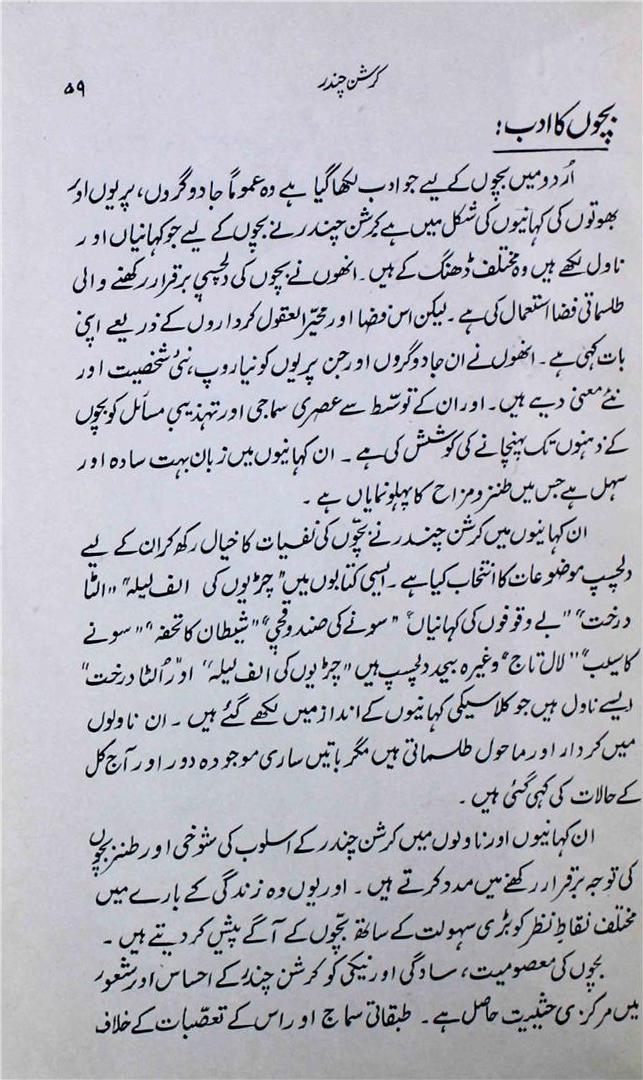 کرشن چندر
۵۹
بچوں کا ادب :
اُردو میں بچوں کے لیے جو ادب لکھا گیا ہے وہ عموماً جادوگروں، پریوں اور
بھوتوں کی کہانیوں کی شکل میں ہے کرشن چندر نے بچوں کے لیے جو کہانیاں اور
ناول لکھے ہیں وہ مختلف ڈھنگ کے ہیں۔ انھوں نے بچوں کی دلچسپی برقرار رکھنے والی
طلسماتی فضا استعمال کی ہے۔ لیکن اس فضا اور محیّر العقول کرداروں کے ذریعے اپنی
بات کہی ہے۔ انھوں نے ان جادوگروں اور جن پریوں کو نیا روپ، نئی شخصیت اور
نئے معنی دیے ہیں۔ اور ان کے توسّط سے عصری سماجی اور تہذیبی مسائل کو بچوں
کے ذہنوں تک پہنچانے کی کوشش کی ہے۔ ان کہانیوں میں زبان بہت سادہ اور
سہل ہے جس میں طنز و مزاح کا پہلو نمایاں ہے۔
ان کہانیوں میں کرشن چندر نے بچّوں کی نفسیات کا خیال رکھ کر ان کے لیے
دلچسپ موضوعات کا انتخاب کیا ہے۔ ایسی کتابوں میں "چڑیوں کی الف لیلہ" "الٹا
درخت" "بے وقوفوں کی کہانیاں" "سونے کی صندوقچی" "شیطان کا تحفہ" "سونے
کا سیب" "لال تاج" وغیرہ بیحد دلچسپ ہیں "چڑیوں کی الف لیلہ" اور "اُلٹا درخت"
ایسے ناول ہیں جو کلاسیکی کہانیوں کے انداز میں لکھے گئے ہیں۔ ان ناولوں
میں کردار اور ماحول طلسماتی ہیں مگر باتیں ساری موجودہ دور اور آج کل
کے حالات کی کہی گئی ہیں۔
ان کہانیوں اور ناولوں میں کرشن چندر کے اسلوب کی شوخی اور طنز بچوں
کی توجہ برقرار رکھنے میں مدد کرتے ہیں۔ اور یوں وہ زندگی کے بارے میں
مختلف نقاطِ نظر کو بڑی سہولت کے ساتھ بچّوں کے آگے پیش کر دیتے ہیں۔
بچوں کی معصومیت، سادگی اور نیکی کو کرشن چندر کے احساس اور شعور
میں مرکزی حیثیت حاصل ہے۔ طبقاتی سماج اور اس کے تعصّبات کے خلاف